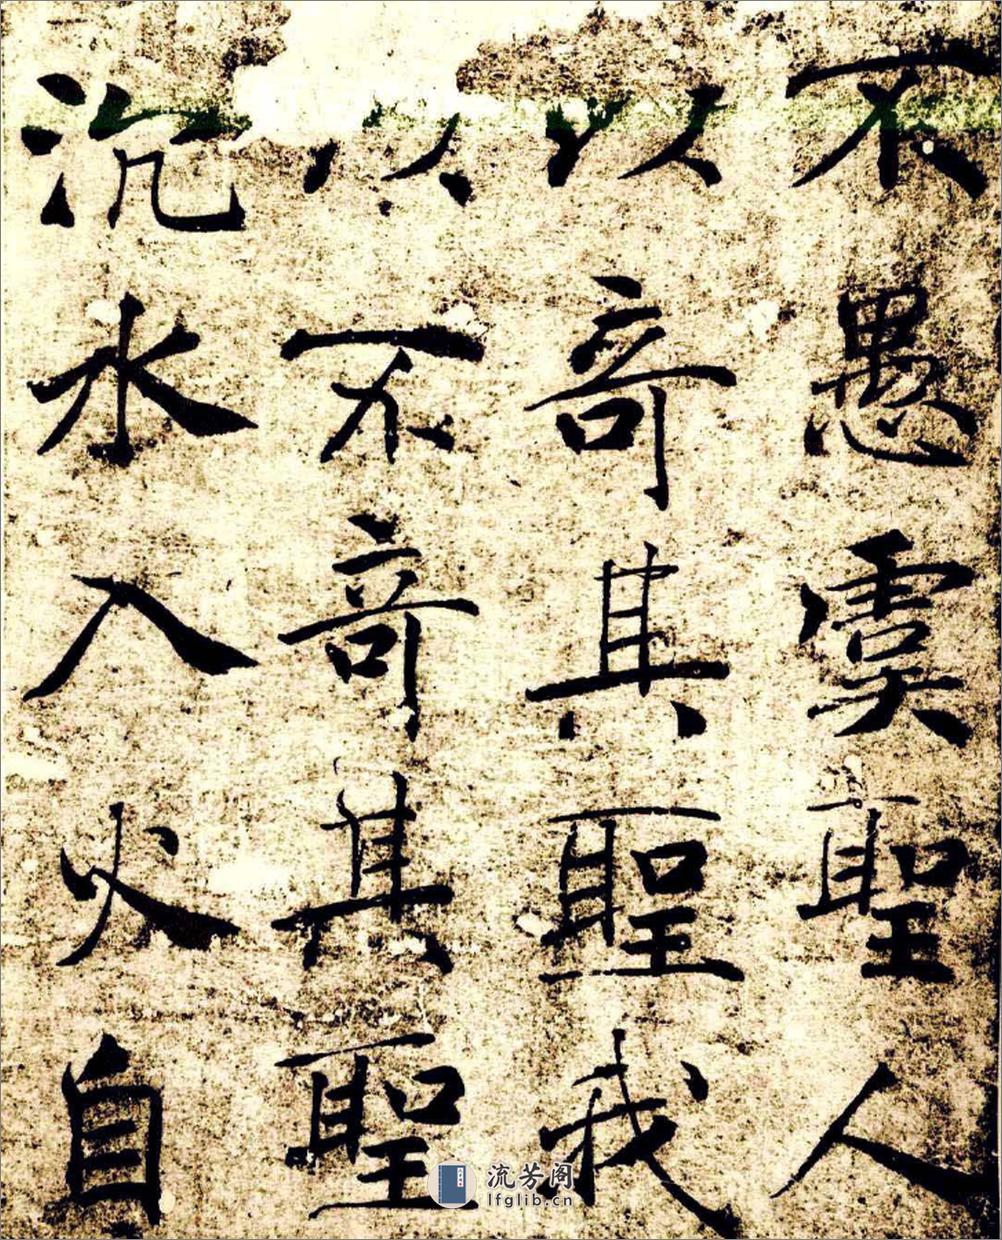 不愚虞聖人
以奇其聖我
以不奇其聖
沉水入火自
流芳阁
lfglib.cn